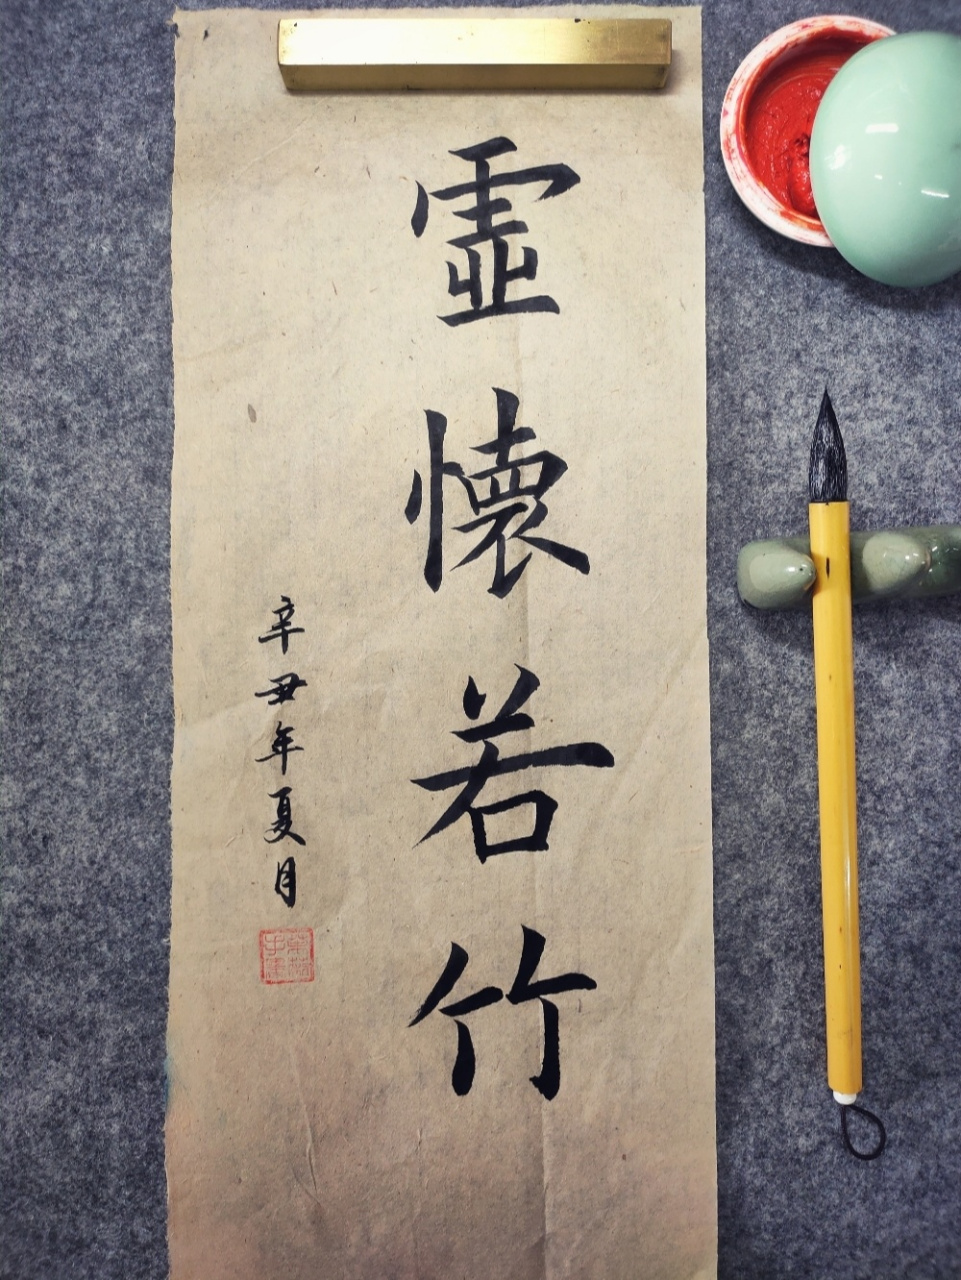 虛懷若竹
辛丑年夏月